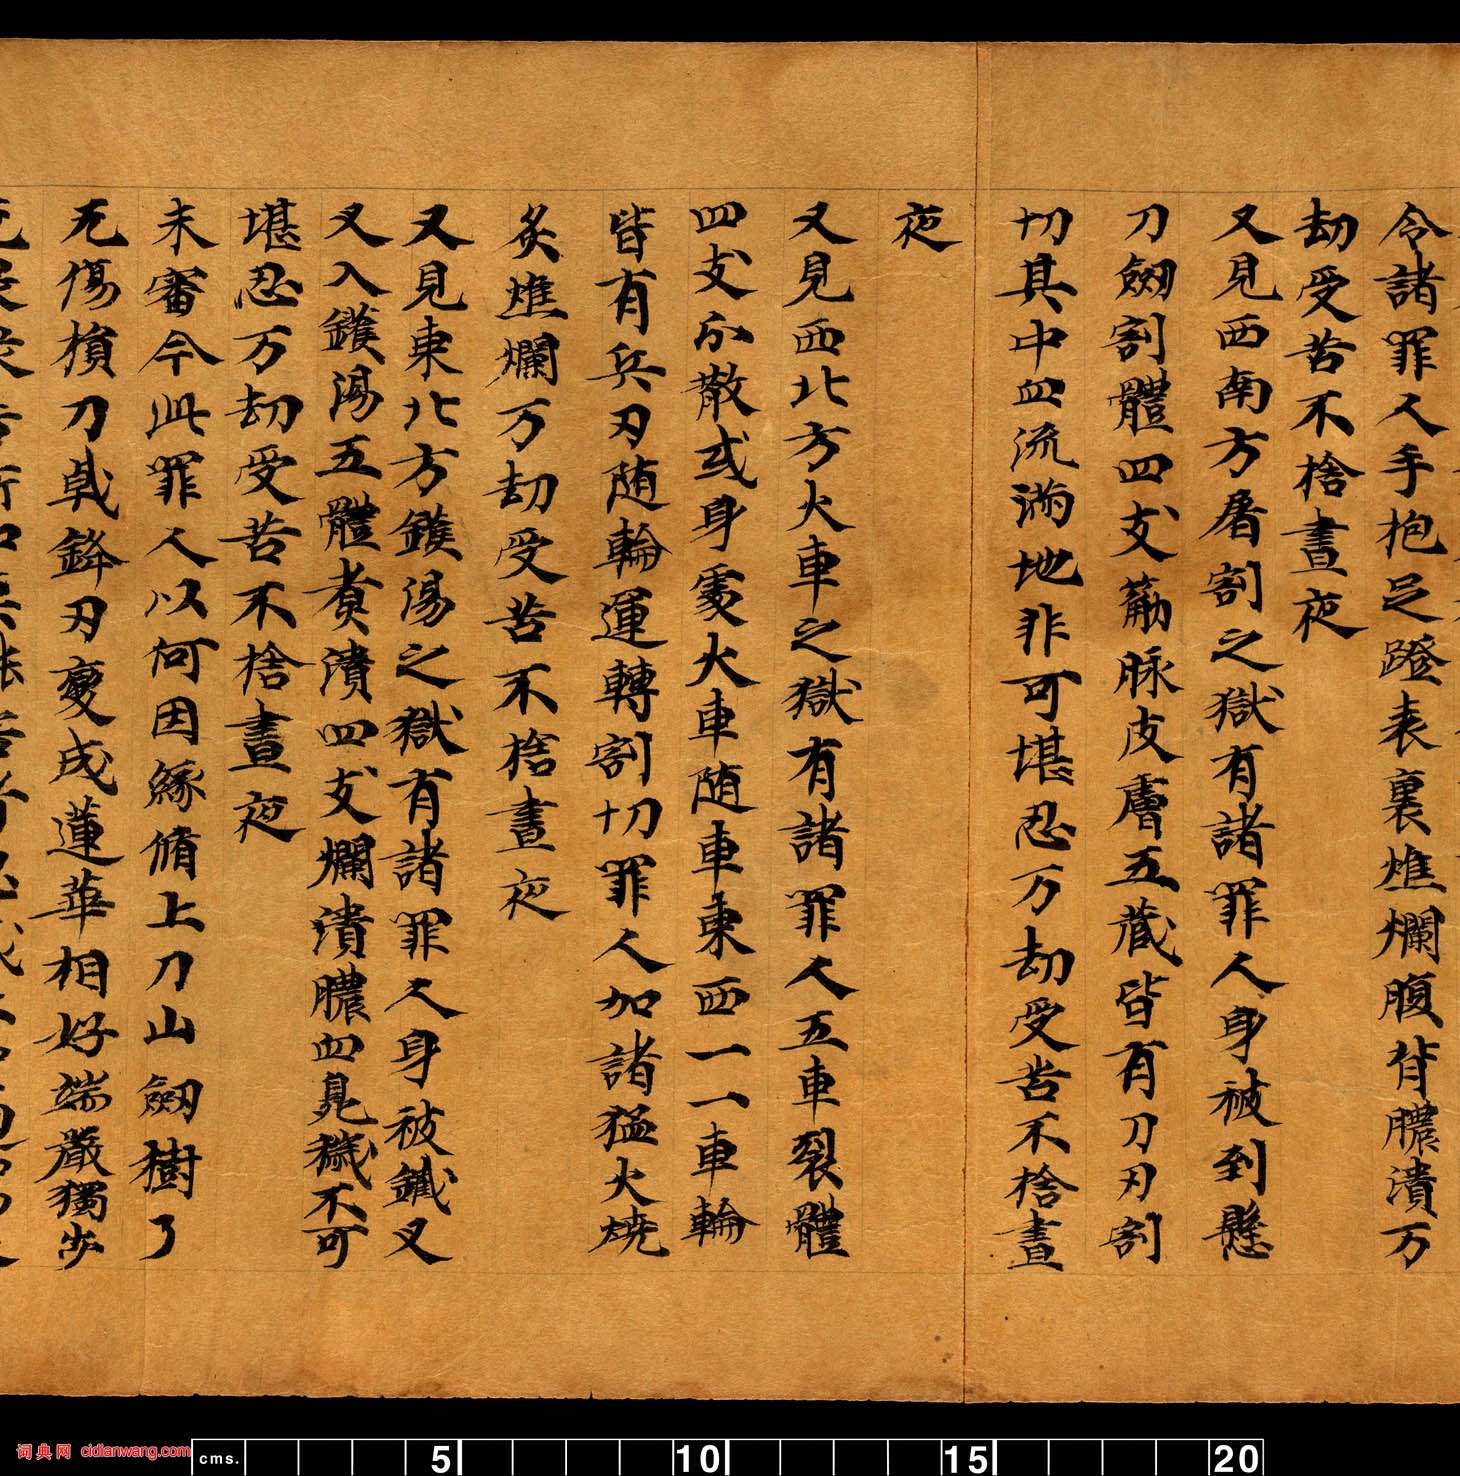 令諸罪人手抱足蹬表裏燋爛腹背膿潰万
劫受苦不捨晝夜
又見西南方屠割之獄有諸罪人身被到懸
刀劒割體四支筋脉皮膚五藏皆有刀刃割
切其中血流满地非可堪忍万劫受苦不捨晝
夜
又見西北方火車之獄有諸罪人五車裂體
四支分散或身處火車随車東西一一車輪
皆有兵刃随輪運轉割切罪人加諸猛火燒
炙燋爛万劫受苦不捨晝夜
又見東北方鑊湯之獄有諸罪人身被鐵叉
叉入鑊湯五體煑潰四支爛潰膿血臰穢不可
堪忍万劫受苦不捨晝夜
未審今此罪人以何因緣脩上刀山劒樹了
无傷損刀戟鋒刃變成蓮華相好端嚴獨步
词典网 cidianwang.com
cms. 5 10 15 20